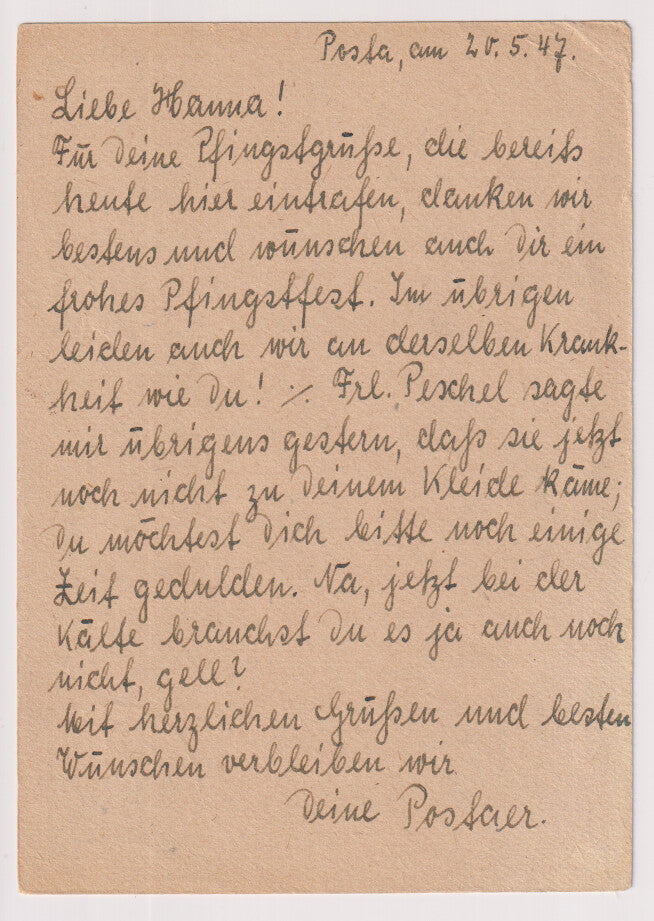 Posta, am 20.5.47.
Liebe Hanna!
Für Deine Pfingstgrüße, die bereits
heute hier eintrafen, danken wir
bestens und wünschen auch Dir ein
frohes Pfingstfest. Im übrigen
leiden auch wir an derselben Krank-
heit wie Du! ./. Frl. Peschel sagte
mir übrigens gestern, daß sie jetzt
noch nicht zu Deinem Kleide käme;
Du möchtest Dich bitte noch einige
Zeit gedulden. Na, jetzt bei der
Kälte brauchst Du es ja auch noch
nicht, gell?
Mit herzlichen Grüßen und besten
Wünschen verbleiben wir
Deine Postaer.